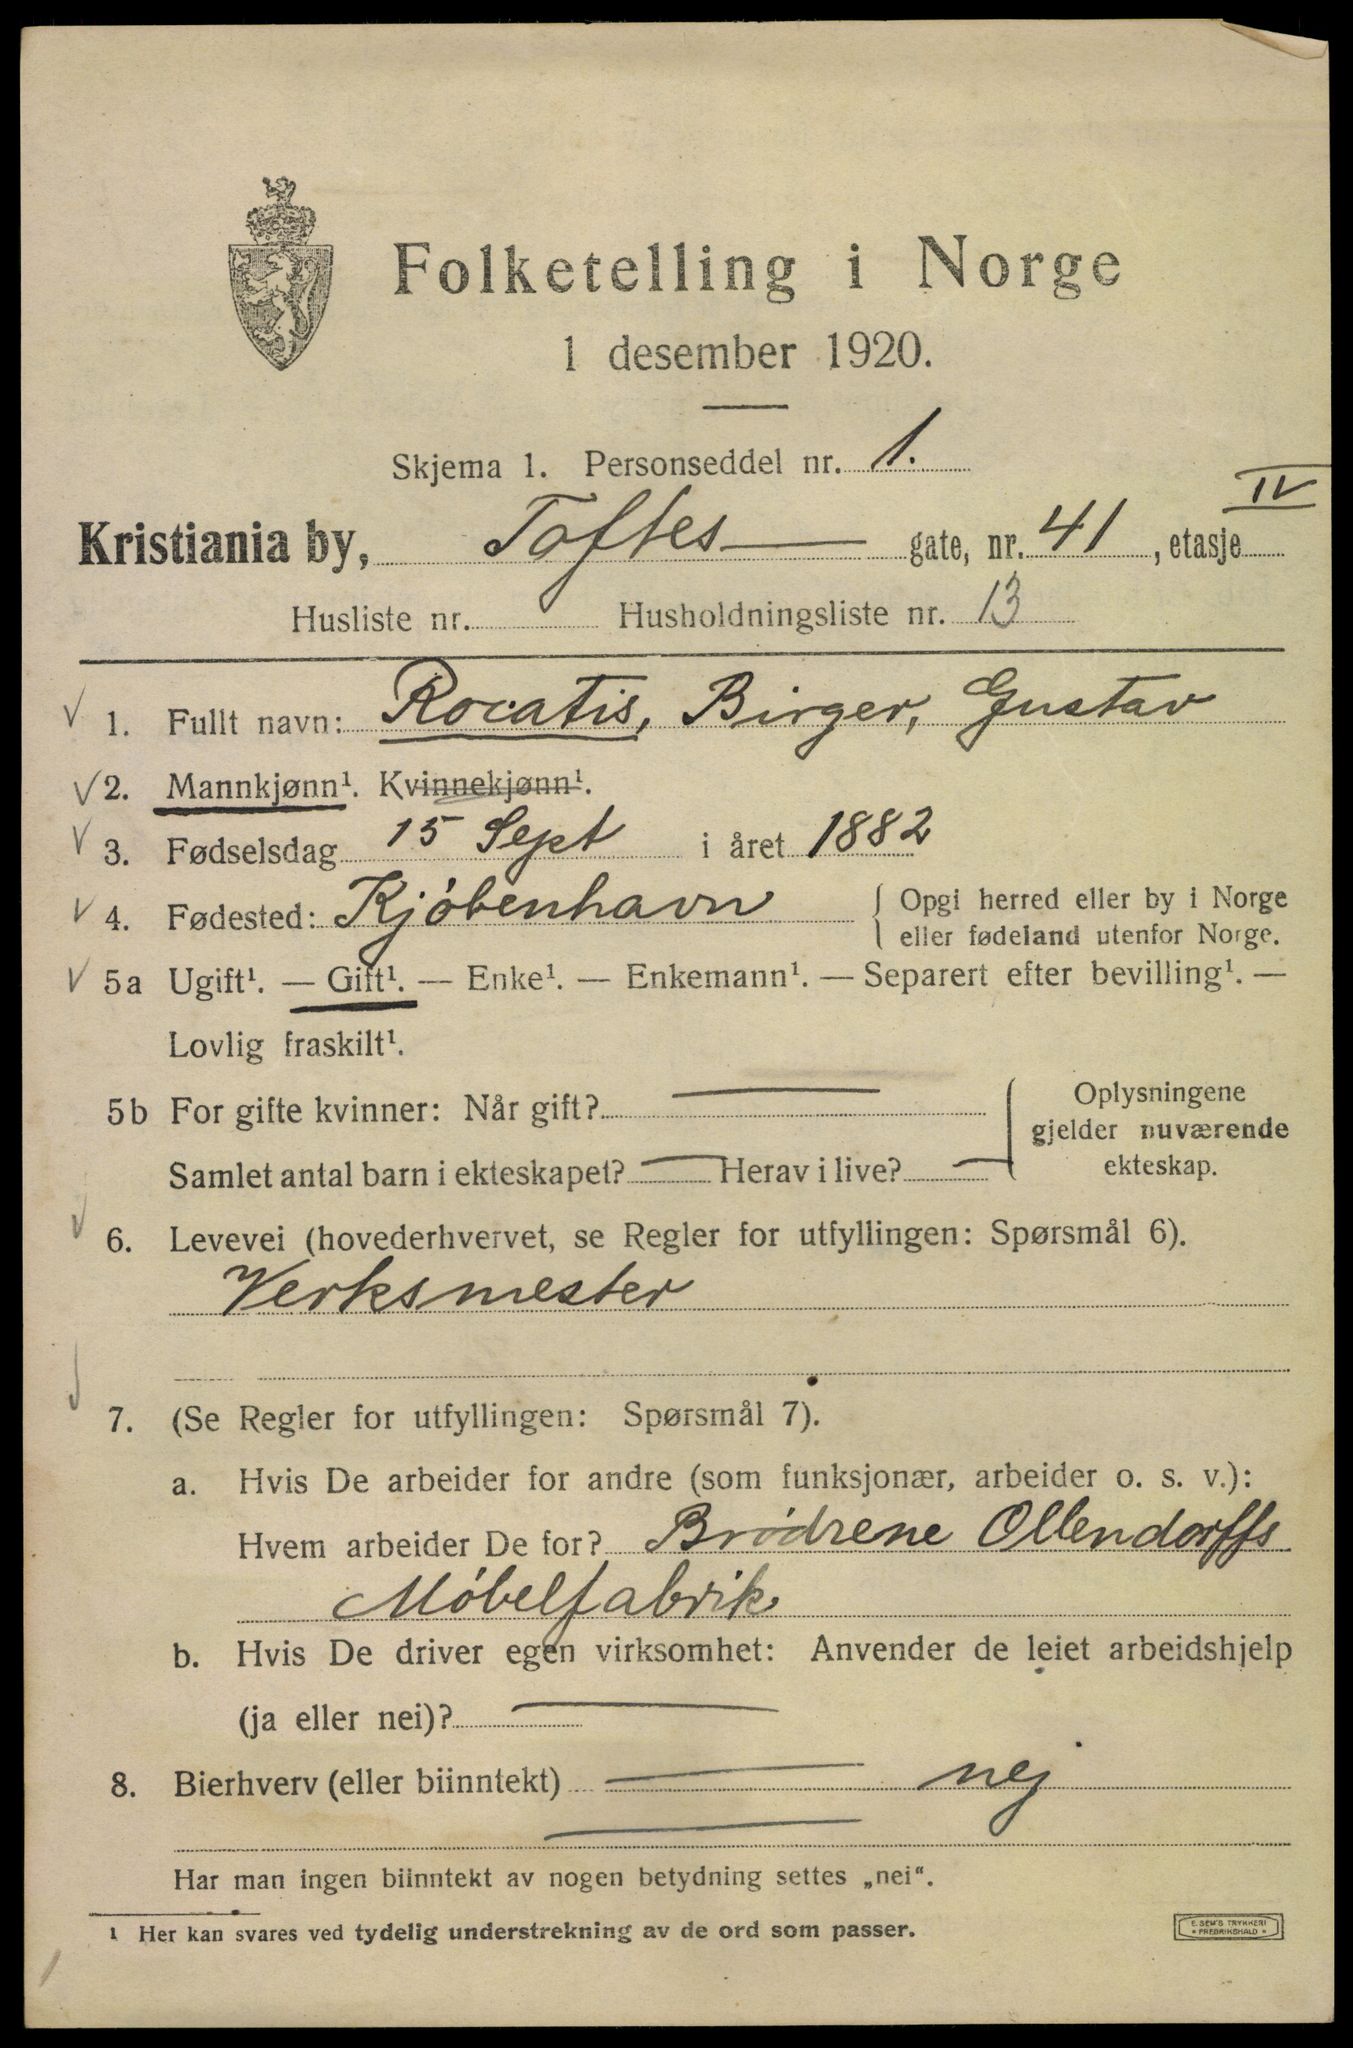 Folketelling i Norge
1 desember 1920.
Skjema 1. Personseddel nr. 1.
Kristiania by, Toftes gate, nr. 41, etasje IV
Husliste nr. Husholdningsliste nr. 13
1. Fullt navn: Rocatis, Birger, Gustav
2. Mannkjønn¹. Kvinnekjønn¹.
3. Fødselsdag 15 Sept i året 1882
4. Fødested: Kjöbenhavn { Opgi herred eller by i Norge
eller fødeland utenfor Norge.
5a Ugift¹. — Gift¹. — Enke¹. — Enkemann¹. — Separert efter bevilling¹. —
Lovlig fraskilt¹.
5b For gifte kvinner: Når gift? — Oplysningene
gjelder nuværende
Samlet antal barn i ekteskapet? — Herav i live? — ekteskap.
6. Levevei (hovederhvervet, se Regler for utfyllingen: Spørsmål 6).
Verksmester
7. (Se Regler for utfyllingen: Spørsmål 7).
a. Hvis De arbeider for andre (som funksjonær, arbeider o. s. v.):
Hvem arbeider De for? Brödrene Ollendorffs
Möbelfabrik
b. Hvis De driver egen virksomhet: Anvender de leiet arbeidshjelp
(ja eller nei)? —
8. Bierhverv (eller biinntekt) — nej
Har man ingen biinntekt av nogen betydning settes „nei“.
¹ Her kan svares ved tydelig understrekning av de ord som passer.
E. SEM'S TRYKKERI
* FREDRIKSHALD *